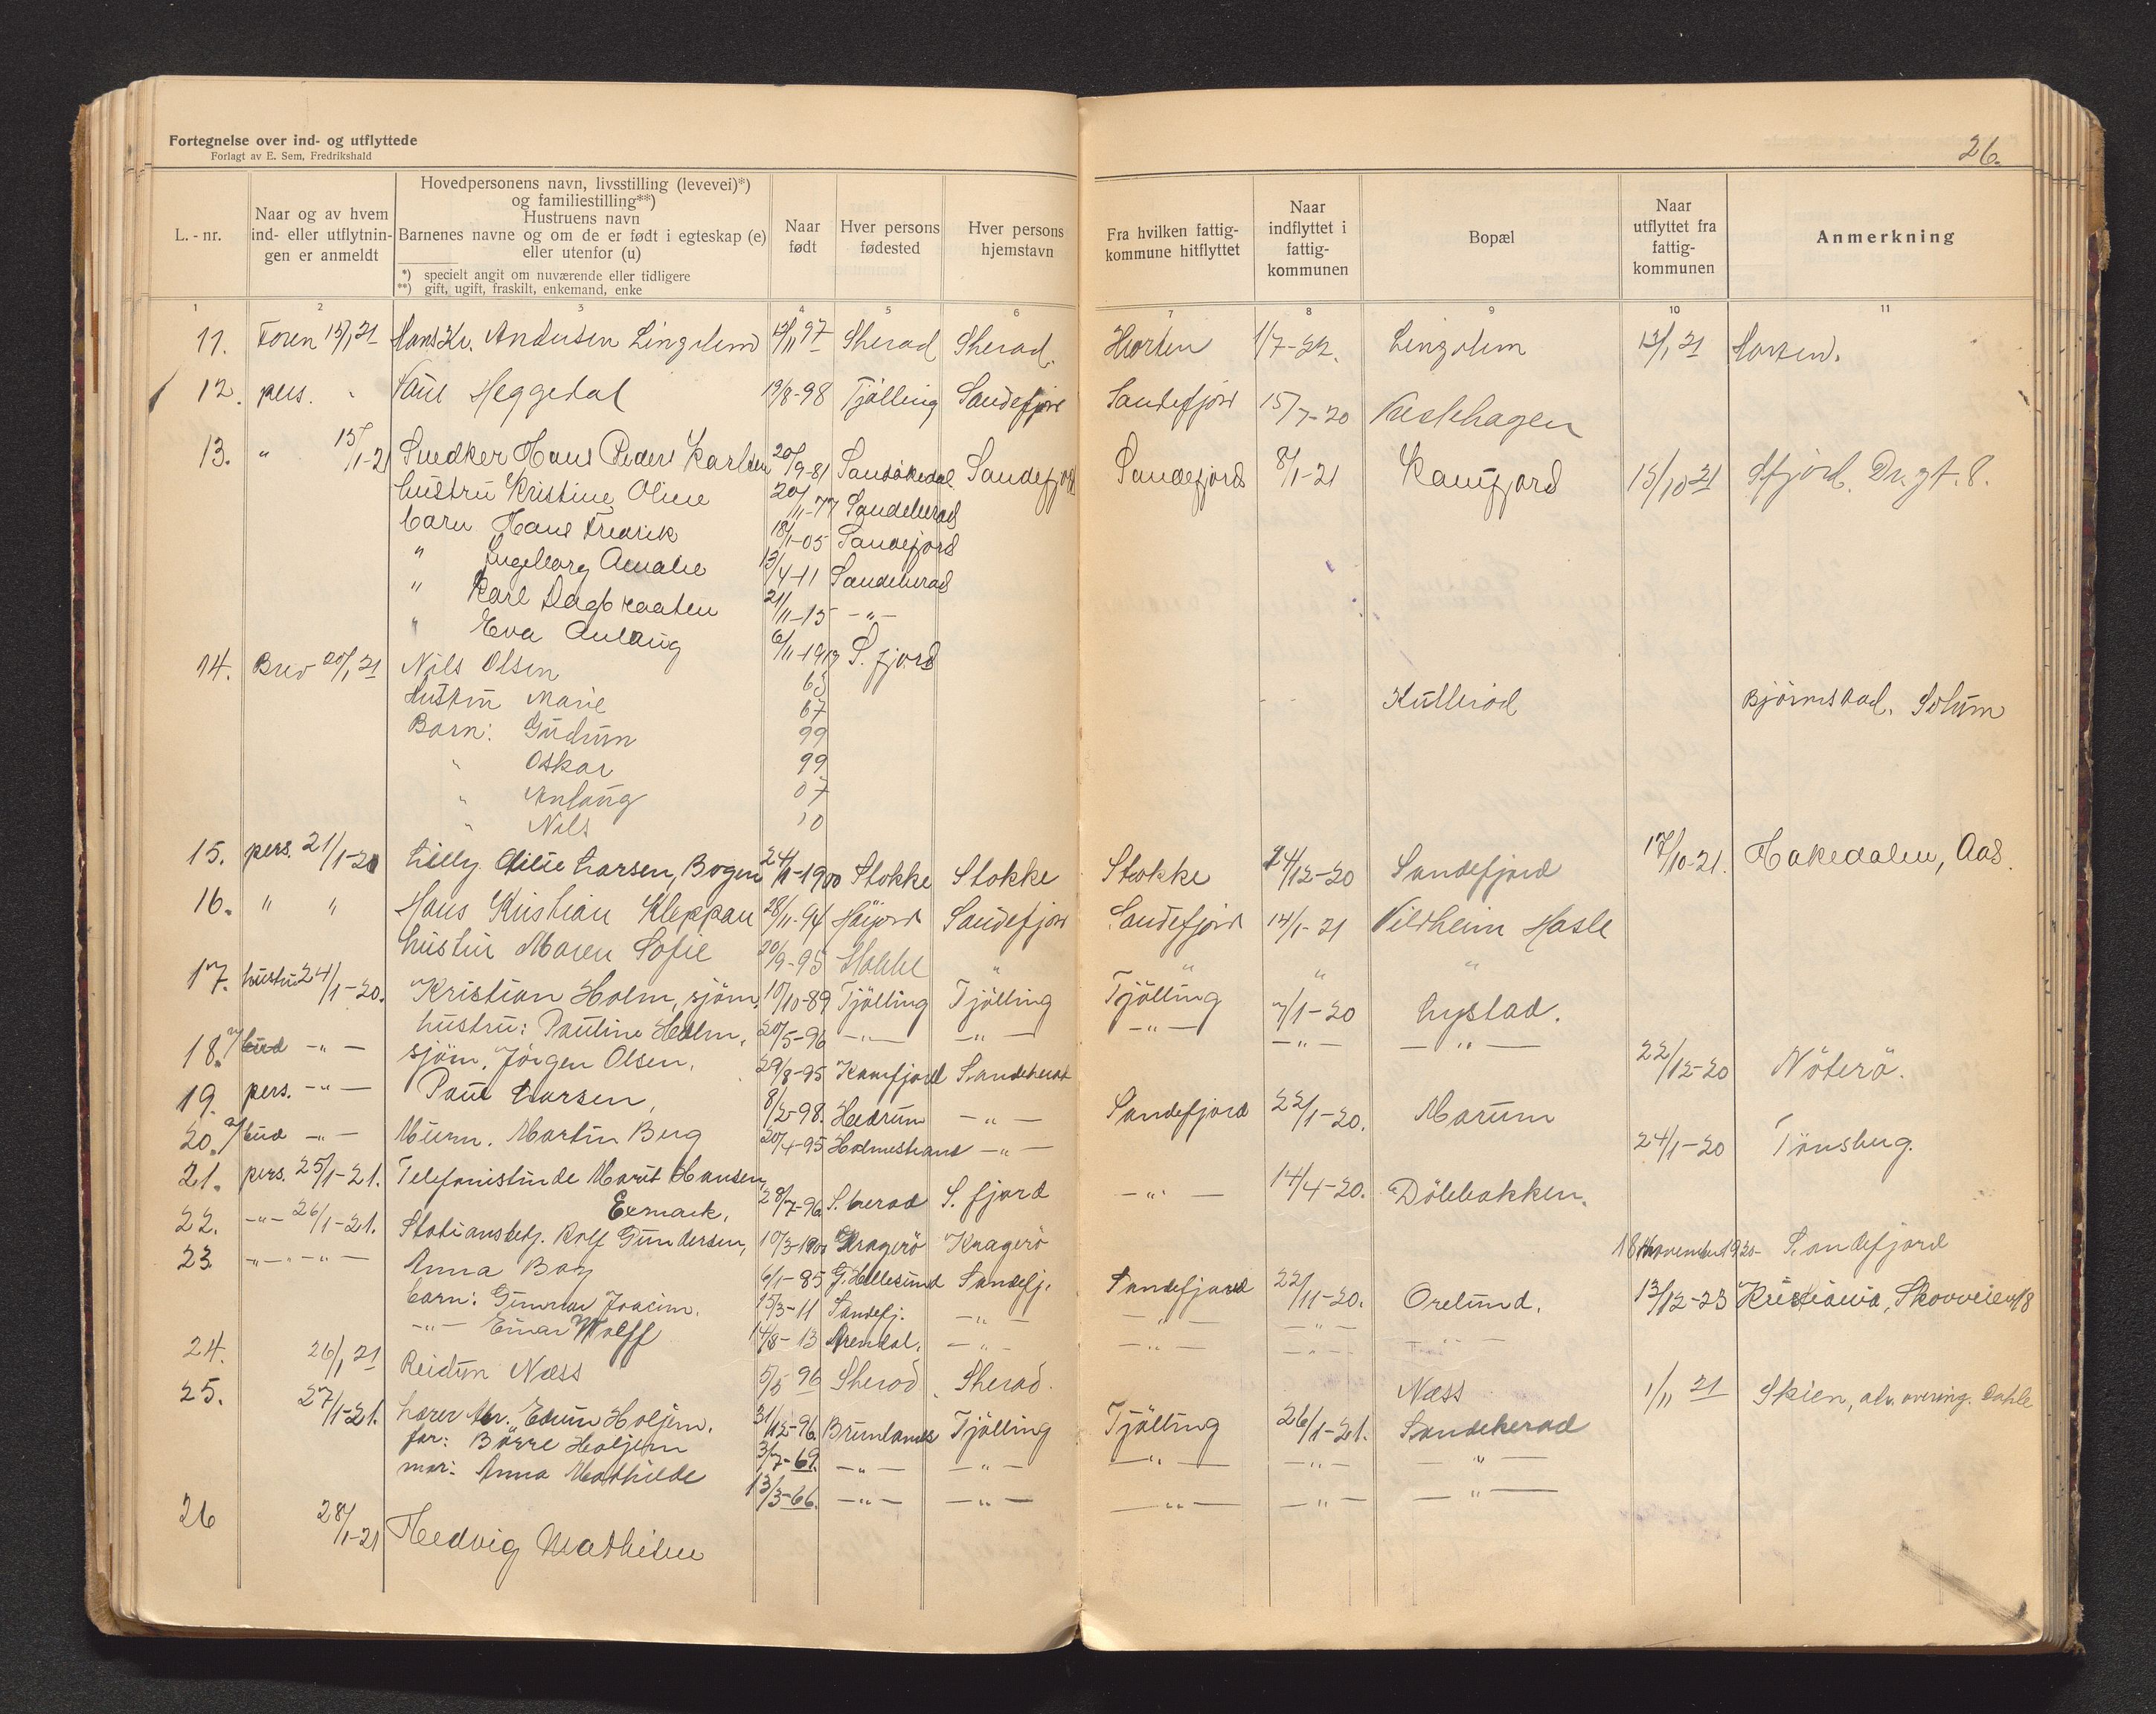 Fortegnelse over ind- og utflyttede
Forlagt av E. Sem, Fredrikshald
26.
L. - nr.
Naar og av hvem ind- eller utflytnin- gen er anmeldt
Hovedpersonens navn, livsstilling (levevei)*)
og familiestilling**)
Hustruens navn
Barnenes navne og om de er født i egteskap (e)
eller utenfor (u)
*) specielt angit om nuværende eller tidligere
**) gift, ugift, fraskilt, enkemand, enke
Naar født
Hver persons fødested
Hver persons hjemstavn
Fra hvilken fattig- kommune hitflyttet
Naar indflyttet i fattig- kommunen
Bopæl
Naar utflyttet fra fattig- kommunen
Anmerkning
1 2 3 4 5 6 7 8 9 10 11
11. 15/1 21 Hans Kr. Andersen Lingelem 97 Sherad Sherad. Horten 1/7-22. Lingelem 12/1 21 Horten.
12. pers. " Heggedal 19/8-98 Tjølling Sandefjord Sandefjord 15/7-20
13. " 15/1-21 Snedker Hans Peder Karlsen 20/9-81 Sandefjord Sandefjord 8/1-21 Kamfjord 15/10-21 Sfjord. Dr.gt. 8.
hustru Kristine Oline 20/11-77 Sandeherad
barn Hans Fredrik 18/1-05 Sandefjord
" Ingeborg Amalie 13/4-11 Sandeherad
" Karl Dagb raaten 21/11-15 -"-
" Eva Anlaug 6/11-1917 S. fjord
14. Brev 20/1 21 Nils Olsen 63
Hustru Marie 67 Kullerød Bjørnstad. Solum
Barn: Gudrun 99
" Oskar 99
" Anlaug 07
" Nils 10
15. pers. 21/1-20 Lilly Larsen, Bogen 24/11-1900 Stokke Stokke Stokke 24/12-20 Sandefjord 17/10-21. Hakedalen, Aas.
16. " " Hans Kristian Kleppan 28/11-94 Sandefjord Sandefjord 14/1-21 Hasle
hustru Maren Sofie 20/9-95 Stokke " " " "
17. hustru 24/1-20. Kristian Holm, sjøm. 10/10-89 Tjølling Tjølling Tjølling 7/1-20 Lystad.
hustru: Pauline Holm, 20/5-96 -"- -"- -"- -"- -"-
18. bud -"- sjøm. Jørgen Olsen. 29/8-95 Kamfjord Sandeherad 22/12-20 Nøterø.
19. pers. -"- Paul Larsen, 8/2-98. Hedrum -"- Sandefjord 22/1-20. Marum
20. bud -"- Murm. Martin Berg 20/4-95 Holmestrand -"- 24/1-20 Tønsberg.
21. pers. 25/1-21. Telefonistinde Marit Hansen
Ermark, 28/7-96 S.herad S. fjord -"- 14/4-20. Dølebakken.
22. -"- 26/1-21. Stationsbetj. Rolf Gundersen, 10/3-1900 Kragerø Kragerø 18 november 1920 Sandefjord
23 -"- -"- Anna Boy 6/1-85 G. Hellesund Sandefj. Sandefjord 22/11-20. Orelund. 13/12-23 Kristiania, Skovveien 18
barn: Gunnar Joacim. 15/3-11 Sandefj. -"- -"- -"- -"-
-"- Einar Wolff 14/8-13 Arendal. -"- -"- -"-
24. 26/1 21 Reidun Næss 5/5 96 Sherad. Sherad. Næss 1/11 21 Skien, Dahle
25. 27/1-21. Lærer Edvin Holjem. 31/12-96. Brunlanes Tjølling Tjølling 26/1-21. Sandeherad
far: Børre Holjem 3/7-69. -"- -"- -"- -"- -"-
mor: Anna Mathilde 13/3-66. -"- -"- -"- -"- -"-
26 28/1-21 Hedvig Mathisen